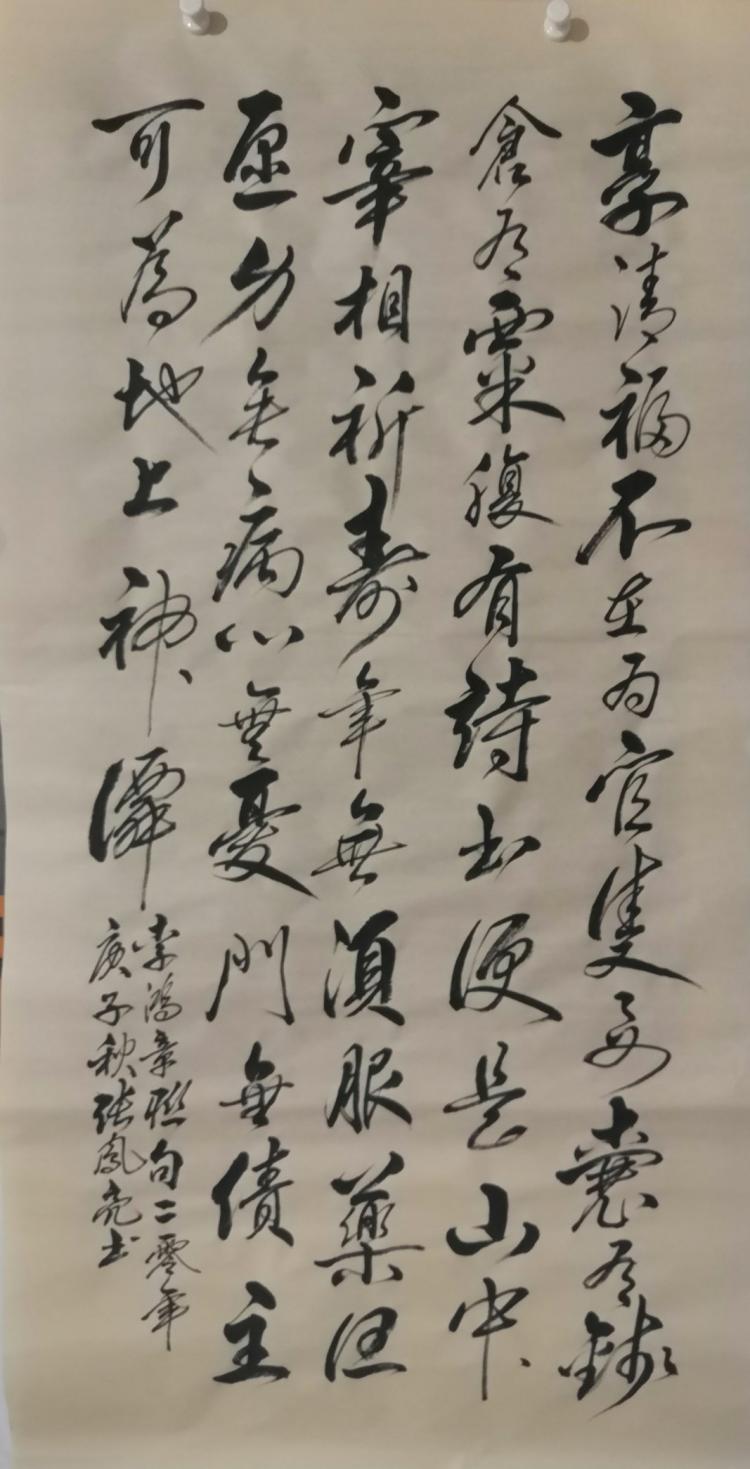 享清福不在为官隻要囊有錢
倉有粟腹有詩书便是山中
宰相祈寿年無須服藥但
愿身無病心無憂門無債主
可為地上神僊
李鴻章聯句二零年
庚子秋張鳳亮书